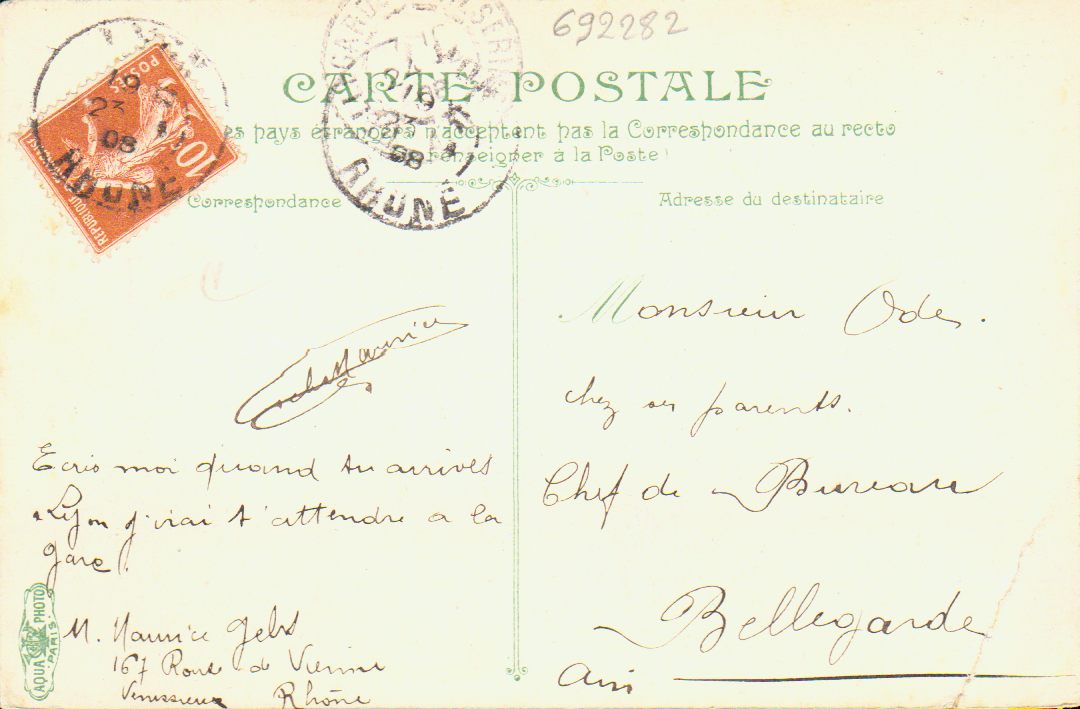 692282
CARTE POSTALE
pays étrangers n'acceptent pas la Correspondance au recto
renseigner à la Poste)
Correspondance
Adresse du destinataire
10
POSTES
REPUBLIQUE
19
23
08
RHONE
19
23
08
RHONE
Maurice
Ecris moi quand tu arrives
a Lyon j'irai t'attendre a la
gare.
M. Maurice
167 Route de Vienne
Venissieux Rhône
Monsieur Odes.
chez ses parents.
Chef de Bureau
Bellegarde
Ain
AQUA PHOTO
PARIS